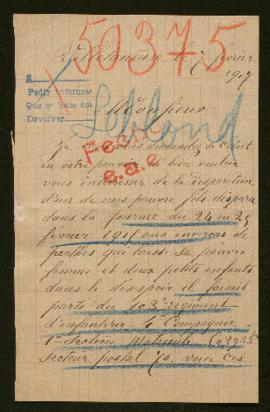 50375
le 7 février
1917
A
Pedir informes
Que se hace en
Devolver
Monsieur
Leblond
Fev
e.a.e
Je vous demander si c'était
en votre pouvoir et bien vouloir
vous interesser de la disparition
d'un de mes pauvre fils disparu
dans la journée du 24 ou 25
fevrier aux environs de
qui laisse sa pauvre
femme et deux petits enfants
dans le desespoir il faisait
partie du 103e regiment
d'infanterie 4e Compagnie
1ere Section Matricule
secteur postal 70. voici ces